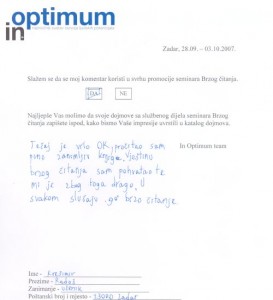 in optimum
Zadar, 28.09. – 03.10.2007.
Slažem se da se moj komentar koristi u svrhu promocije seminara Brzog čitanja.
DA NE
Najljepše Vas molimo da svoje dojmove sa službenog dijela seminara Brzog
čitanja zapišete ispod, kako bismo Vaše impresije uvrstili u katalog dojmova.
in Optimum team
Tečaj je vrlo OK, pročitao sam
puno zanimljivi knjiga, vještinu
brzog čitanja sam pohvatao te
mi je zbog toga drago. U
svakom slučaju brzo čitanje.
Ime - Krešimir
Prezime - Radoš
Zanimanje - učenik
Poštanski broj i mjesto - 23000 Zadar